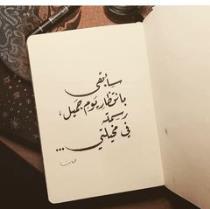 سأبقى
بانتظار يوم جميل،
رسمته
في مخيلتي ...